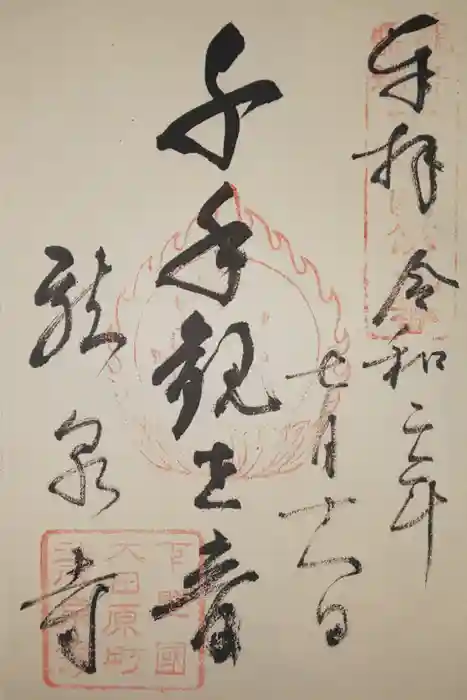 奉拝 令和二年
七月十八日
千手観世音
龍泉寺
下野國
大田原町